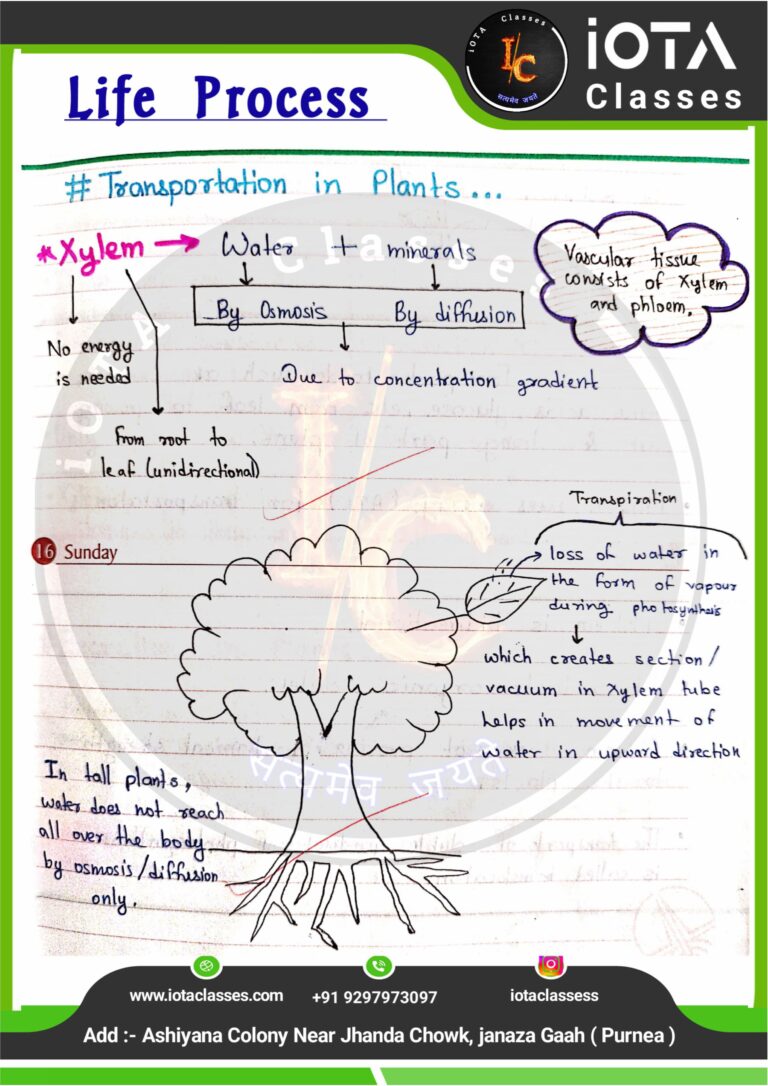 iOTA Classes
I/C
सत्यमेव जयते
iOTA
Classes
Life Process
# Transportation in Plants...
* Xylem → Water + minerals
Vascular tissue
consists of Xylem
and phloem.
By Osmosis By diffusion
No energy
is needed
Due to concentration gradient
From root to
leaf (unidirectional)
Transpiration
16 Sunday
loss of water in
the form of vapour
during photosynthesis
which creates section/
vacuum in Xylem tube
helps in movement of
water in upward direction
In tall plants,
water does not reach
all over the body
by osmosis/diffusion
only.
iOTA Classes
I/C
सत्यमेव जयते
www.iotaclasses.com +91 9297973097 iotaclassess
Add :- Ashiyana Colony Near Jhanda Chowk, janaza Gaah ( Purnea )